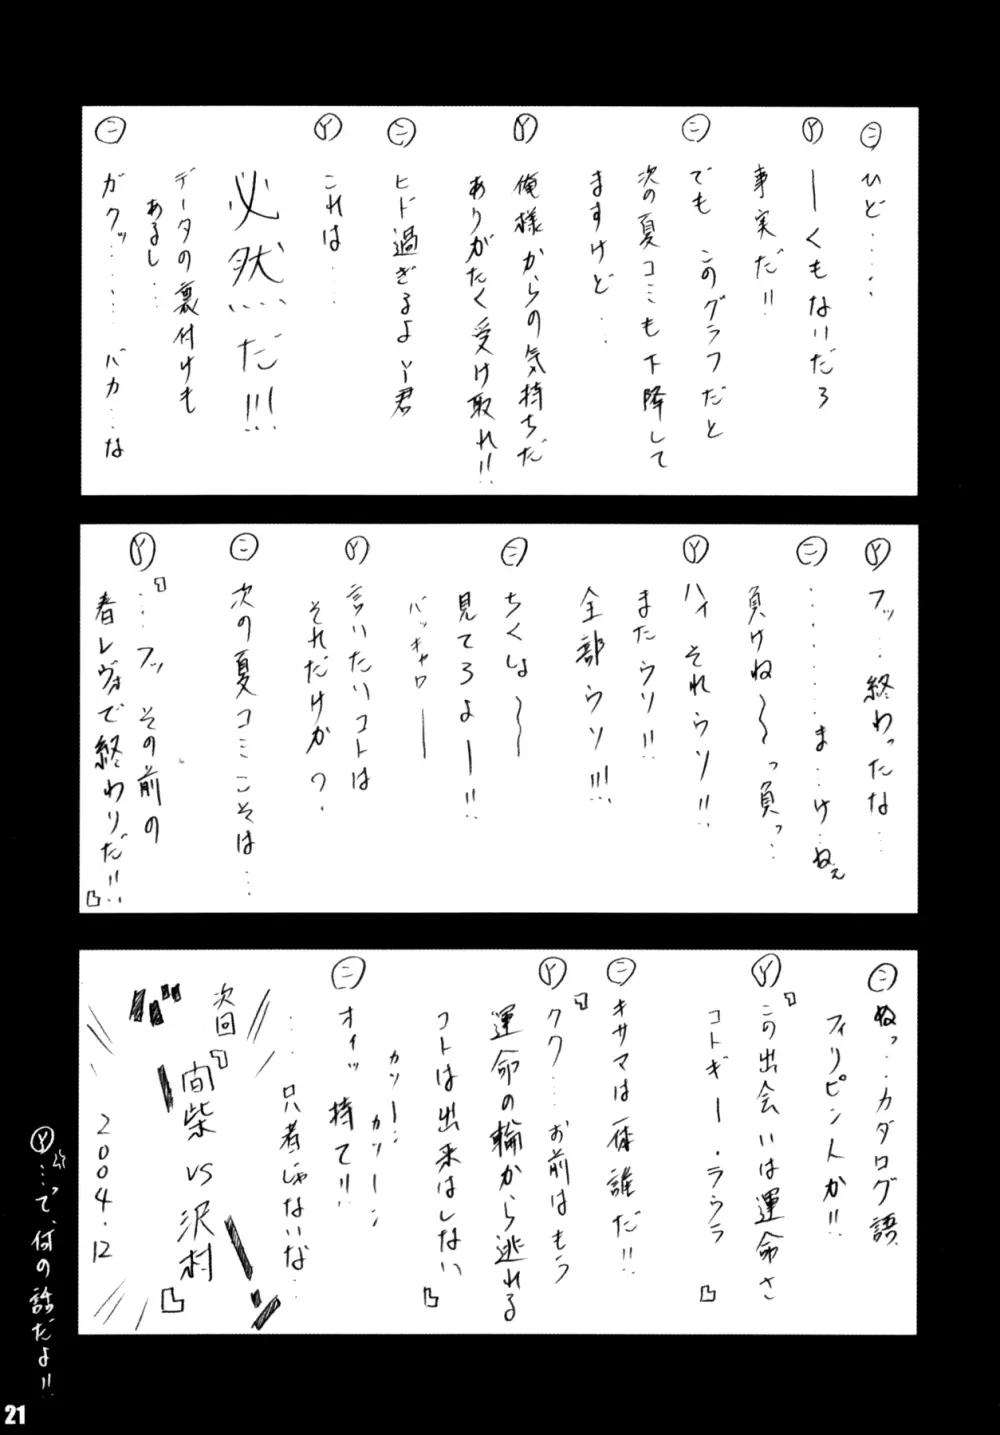 ㊁ ひど……
Ⓨ ーくもないだろ
事実だ!!
㊁ でも このグラフだと
次の夏コミも下降して
ますけど…
Ⓨ 俺様からの気持ちだ
ありがたく受け取れ!!
㊁ ヒド過ぎるよY君
Ⓨ これは……
必然だ!!!
データの裏付けも
あるし…
㊁ ガクッ……… バカ…な
Ⓨ フッ…終わったな…
㊁ ………ま…け…ねぇ
負けね〜〜っ負っ…
Ⓨ ハイ それウソ!!
またウソ!!
全部ウソ!!!
㊁ ちくしょ〜〜
見てろよー!!
バッキャロー
Ⓨ 言いたいコトは
それだけか?
㊁ 次の夏コミこそは…
Ⓨ 『…フッ その前の
春レヴォで終わりだ!!』
㊁ ぬっ…カタログ語
フィリピン人か!!
Ⓨ 『この出会いは運命さ
コトギー・ラララ』
㊁ キサマは一体誰だ!!
Ⓨ 『ククク…お前はもう
運命の輪から逃れる
コトは出来はしない』
カツーン カツーン
㊁ オイッ 待て!!
… 只者じゃないな…
次回『間柴 vs 沢村』
2004.12
Ⓨ …って、何の話だよ!!
21